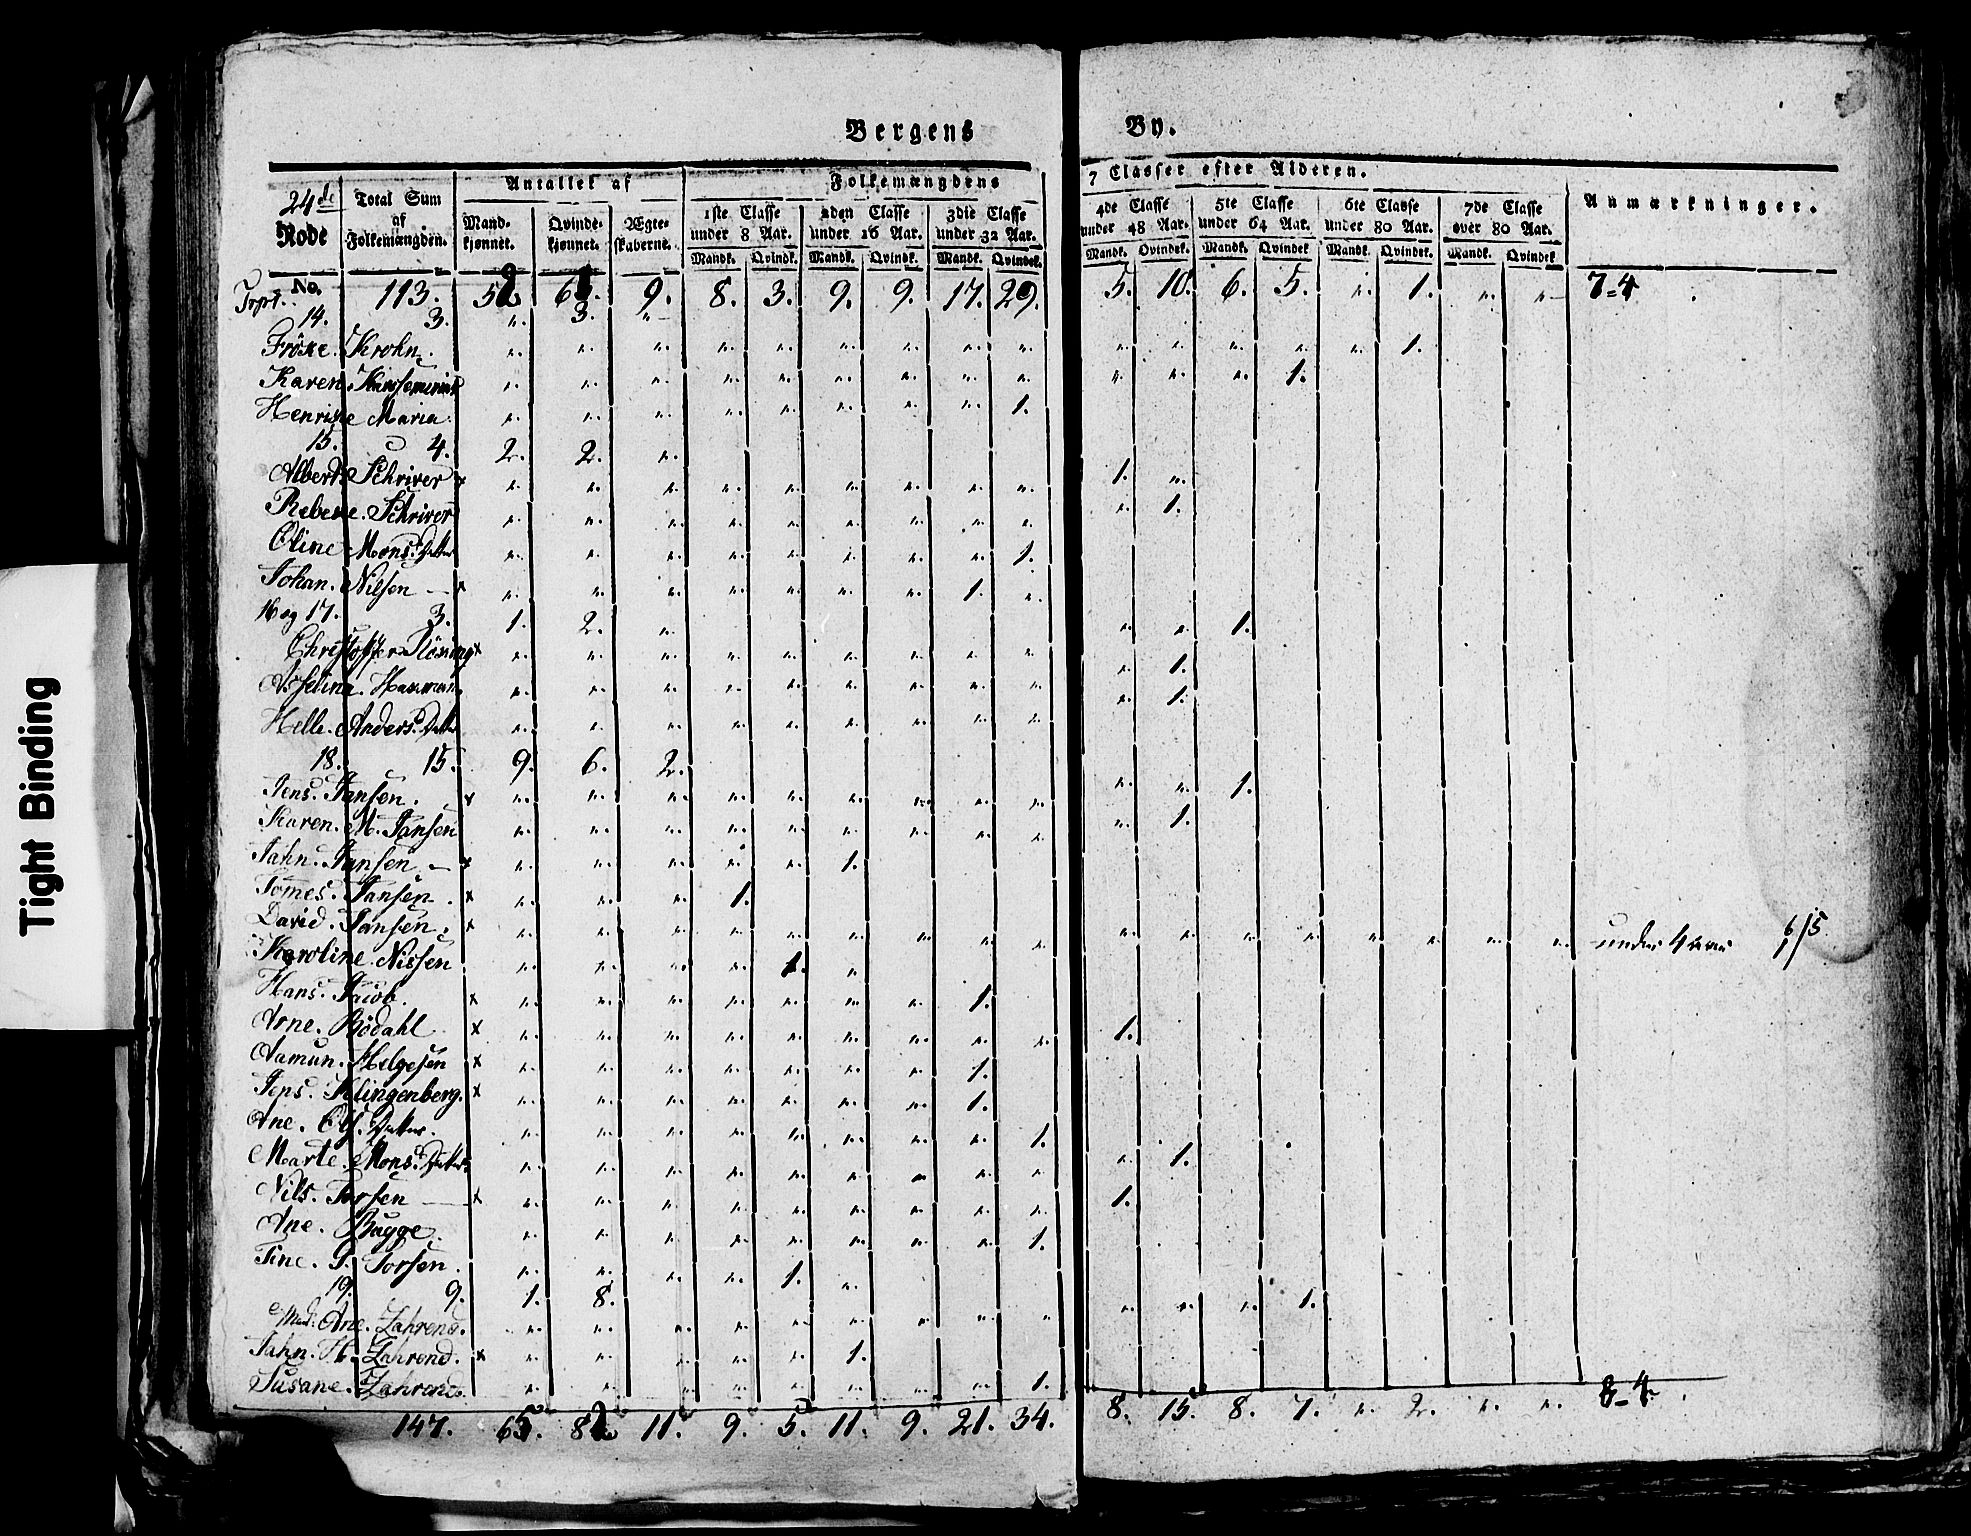 Tight Binding
Bergens By.
24de Rode
Total Sum af Folkemængden.
Antallet af
Mandkjønnet. Qvindekjønnet. Ægteskaberne.
Folkemængdens 7 Classer efter Alderen.
1ste Classe under 8 Aar. 2den Classe under 16 Aar. 3die Classe under 32 Aar. 4de Classe under 48 Aar. 5te Classe under 64 Aar. 6te Classe under 80 Aar. 7de Classe over 80 Aar.
Anmærkninger.
Mandk. Qvindek. Mandk. Qvindek. Mandk. Qvindek. Mandk. Qvindek. Mandk. Qvindek. Mandk. Qvindek. Mandk. Qvindek.
No.
Trpt. 113. 9. 8. 3. 9. 9. 17. 29. 5. 10. 6. 5. „ 1. „ „ 7=4
14. 3. „ 3. „
Fröke. Krohn. „ „ „ „ „ „ „ „ „ „ „ „ „ „ 1.
Karen. „ „ „ „ „ „ „ „ „ „ „ „ 1.
Henrikke Maria. „ „ „ „ „ „ „ „ 1.
15. 4. 2. 2. „
Albert. Schriver x „ „ „ „ „ „ „ „ „ 1. „
Rebekke. Schriver „ „ „ „ „ „ „ „ „ „ 1.
Oline Mons. Datter „ „ „ „ „ „ „ „ 1.
Johan. Nilsen x „ „ „ „ „ „ „ 1. „
16 og 17. 3. 1. 2. „ „ „ 1.
Christoffer Rösing x „ „ „ „ „ „ „ „ „ „ 1.
Asseline. „ „ „ „ „ „ „ „ „ „ 1.
Helle. Anders. Datter „ „ „ „ „ „ „ „ „
18. 15. 9. 6. 2.
Jens. Jansen. x „ „ „ „ „ „ „ „ „ „ „ 1.
Karen. M. Jansen „ „ „ „ „ „ „ „ „ „ 1.
Jahn. Jansen. x „ „ „ „ „ 1.
Tomes. Jansen. x „ „ „ 1.
David. Jansen. x „ „ „ „ „ „ „ „ „ „ „ „ „ „ „ „ „ under 4 6/5
Karoline Nissen „ „ „ „ 1. „
Hans. Jacob. x „ „ „ „ „ „ „ 1.
Arne. Rödahl x „ „ „ „ „ „ „ „ „ 1.
Aamun. Helgesen x „ „ „ „ „ „ „ 1.
Jens. Klingenberg. x „ „ „ „ „ „ „ 1.
Ane. Ols. Datter. „ „ „ „ „ „ „ „ 1.
Marte. Mons. Datter. „ „ „ „ „ „ „ „ „ „ 1.
Nils. Torsen x „ „ „ „ „ „ „ „ „ 1.
Ane. Bugge. „ „ „ „ „ „ „ „ 1.
Tine. T. Torsen. „ „ „ „ 1. „
19. 9. 1. 8.
Mad. Ane. Zahrend. „ „ „ „ „ „ „ „ „ „ „ „ 1.
Jahn. H. Zahrend. x „ „ „ „ „ 1.
Susane. Zahrend. „ „ „ „ „ „ „ „ 1.
147. 11. 9. 5. 11. 9. 21. 34. 8. 15. 8. 7. „ 2. „ „ 8=4